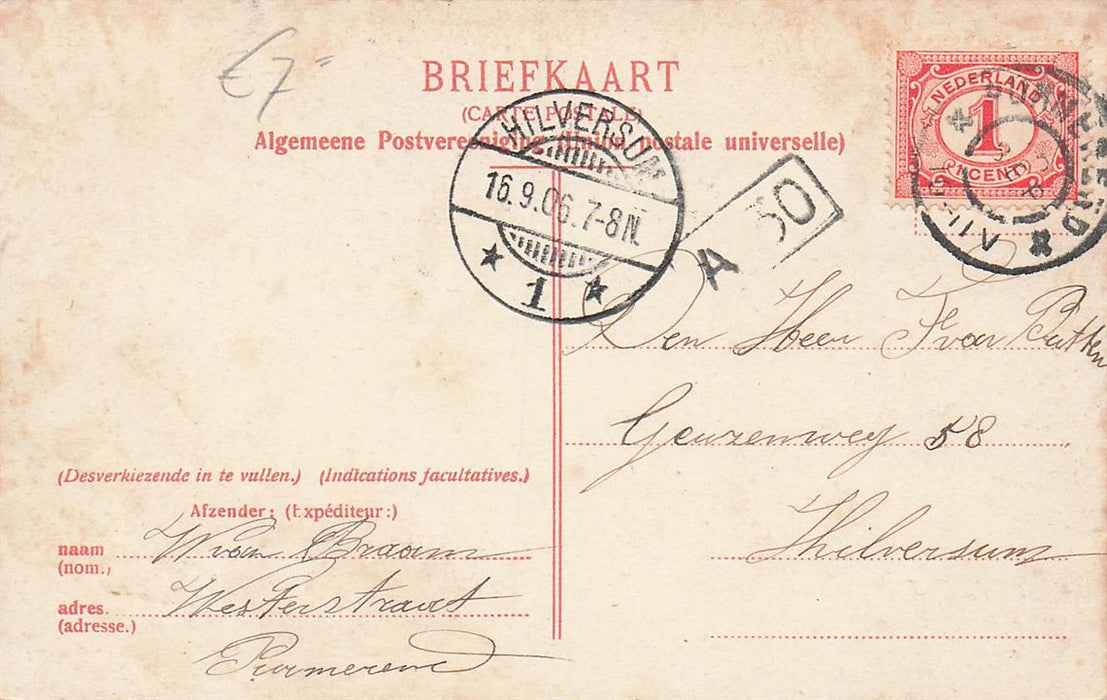 €7=
BRIEFKAART
(CARTE POSTALE)
Algemeene Postvereeniging (Union postale universelle)
NEDERLAND
1
CENT
HILVERSUM
16.9.06.7-8N.
1
A 50
Den Heer F van Putten
Geuzenweg 58
Hilversum
(Desverkiezende in te vullen.) (Indications facultatives.)
Afzender: (Expéditeur:)
naam W van Braam
(nom.)
adres. Westerstraat
(adresse.)
Purmerend